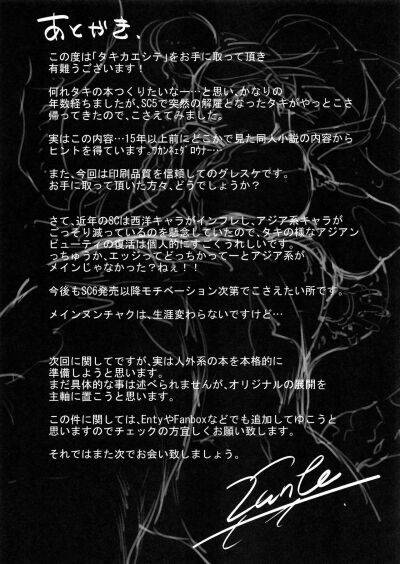 あとがき、
この度は「タキカエシテ」をお手に取って頂き
有難うございます！
何れタキの本つくりたいなー…と思い、かなりの
年数経ちましたが、SC5で突然の解雇となったタキがやっとこさ
帰ってきたので、こさえてみました。
実はこの内容…15年以上前にどこかで見た同人小説の内容から
ヒントを得ています。ﾜｶﾝﾈｪﾀﾞﾛｳﾅ…
また、今回は印刷品質を信頼してのグレスケです。
お手に取って頂いた方々、どうでしょうか？
さて、近年のSCは西洋キャラがインフレし、アジア系キャラが
ごっそり減っているのを懸念していたので、タキの様なアジアン
ビューティの復活は個人的にすごくうれしいです。
っちゅうか、エッジってどっちかってーとアジア系が
メインじゃなかった？ねぇ！！
今後もSC6発売以降モチベーション次第でこさえたい所です。
メインヌンチャクは、生涯変わらないですけど…
次回に関してですが、実は人外系の本を本格的に
準備しようと思います。
まだ具体的な事は述べられませんが、オリジナルの展開を
主軸に置こうと思います。
この件に関しては、EntyやFanboxなどでも追加してゆこうと
思いますのでチェックの方宜しくお願い致します。
それではまた次でお会い致しましょう。